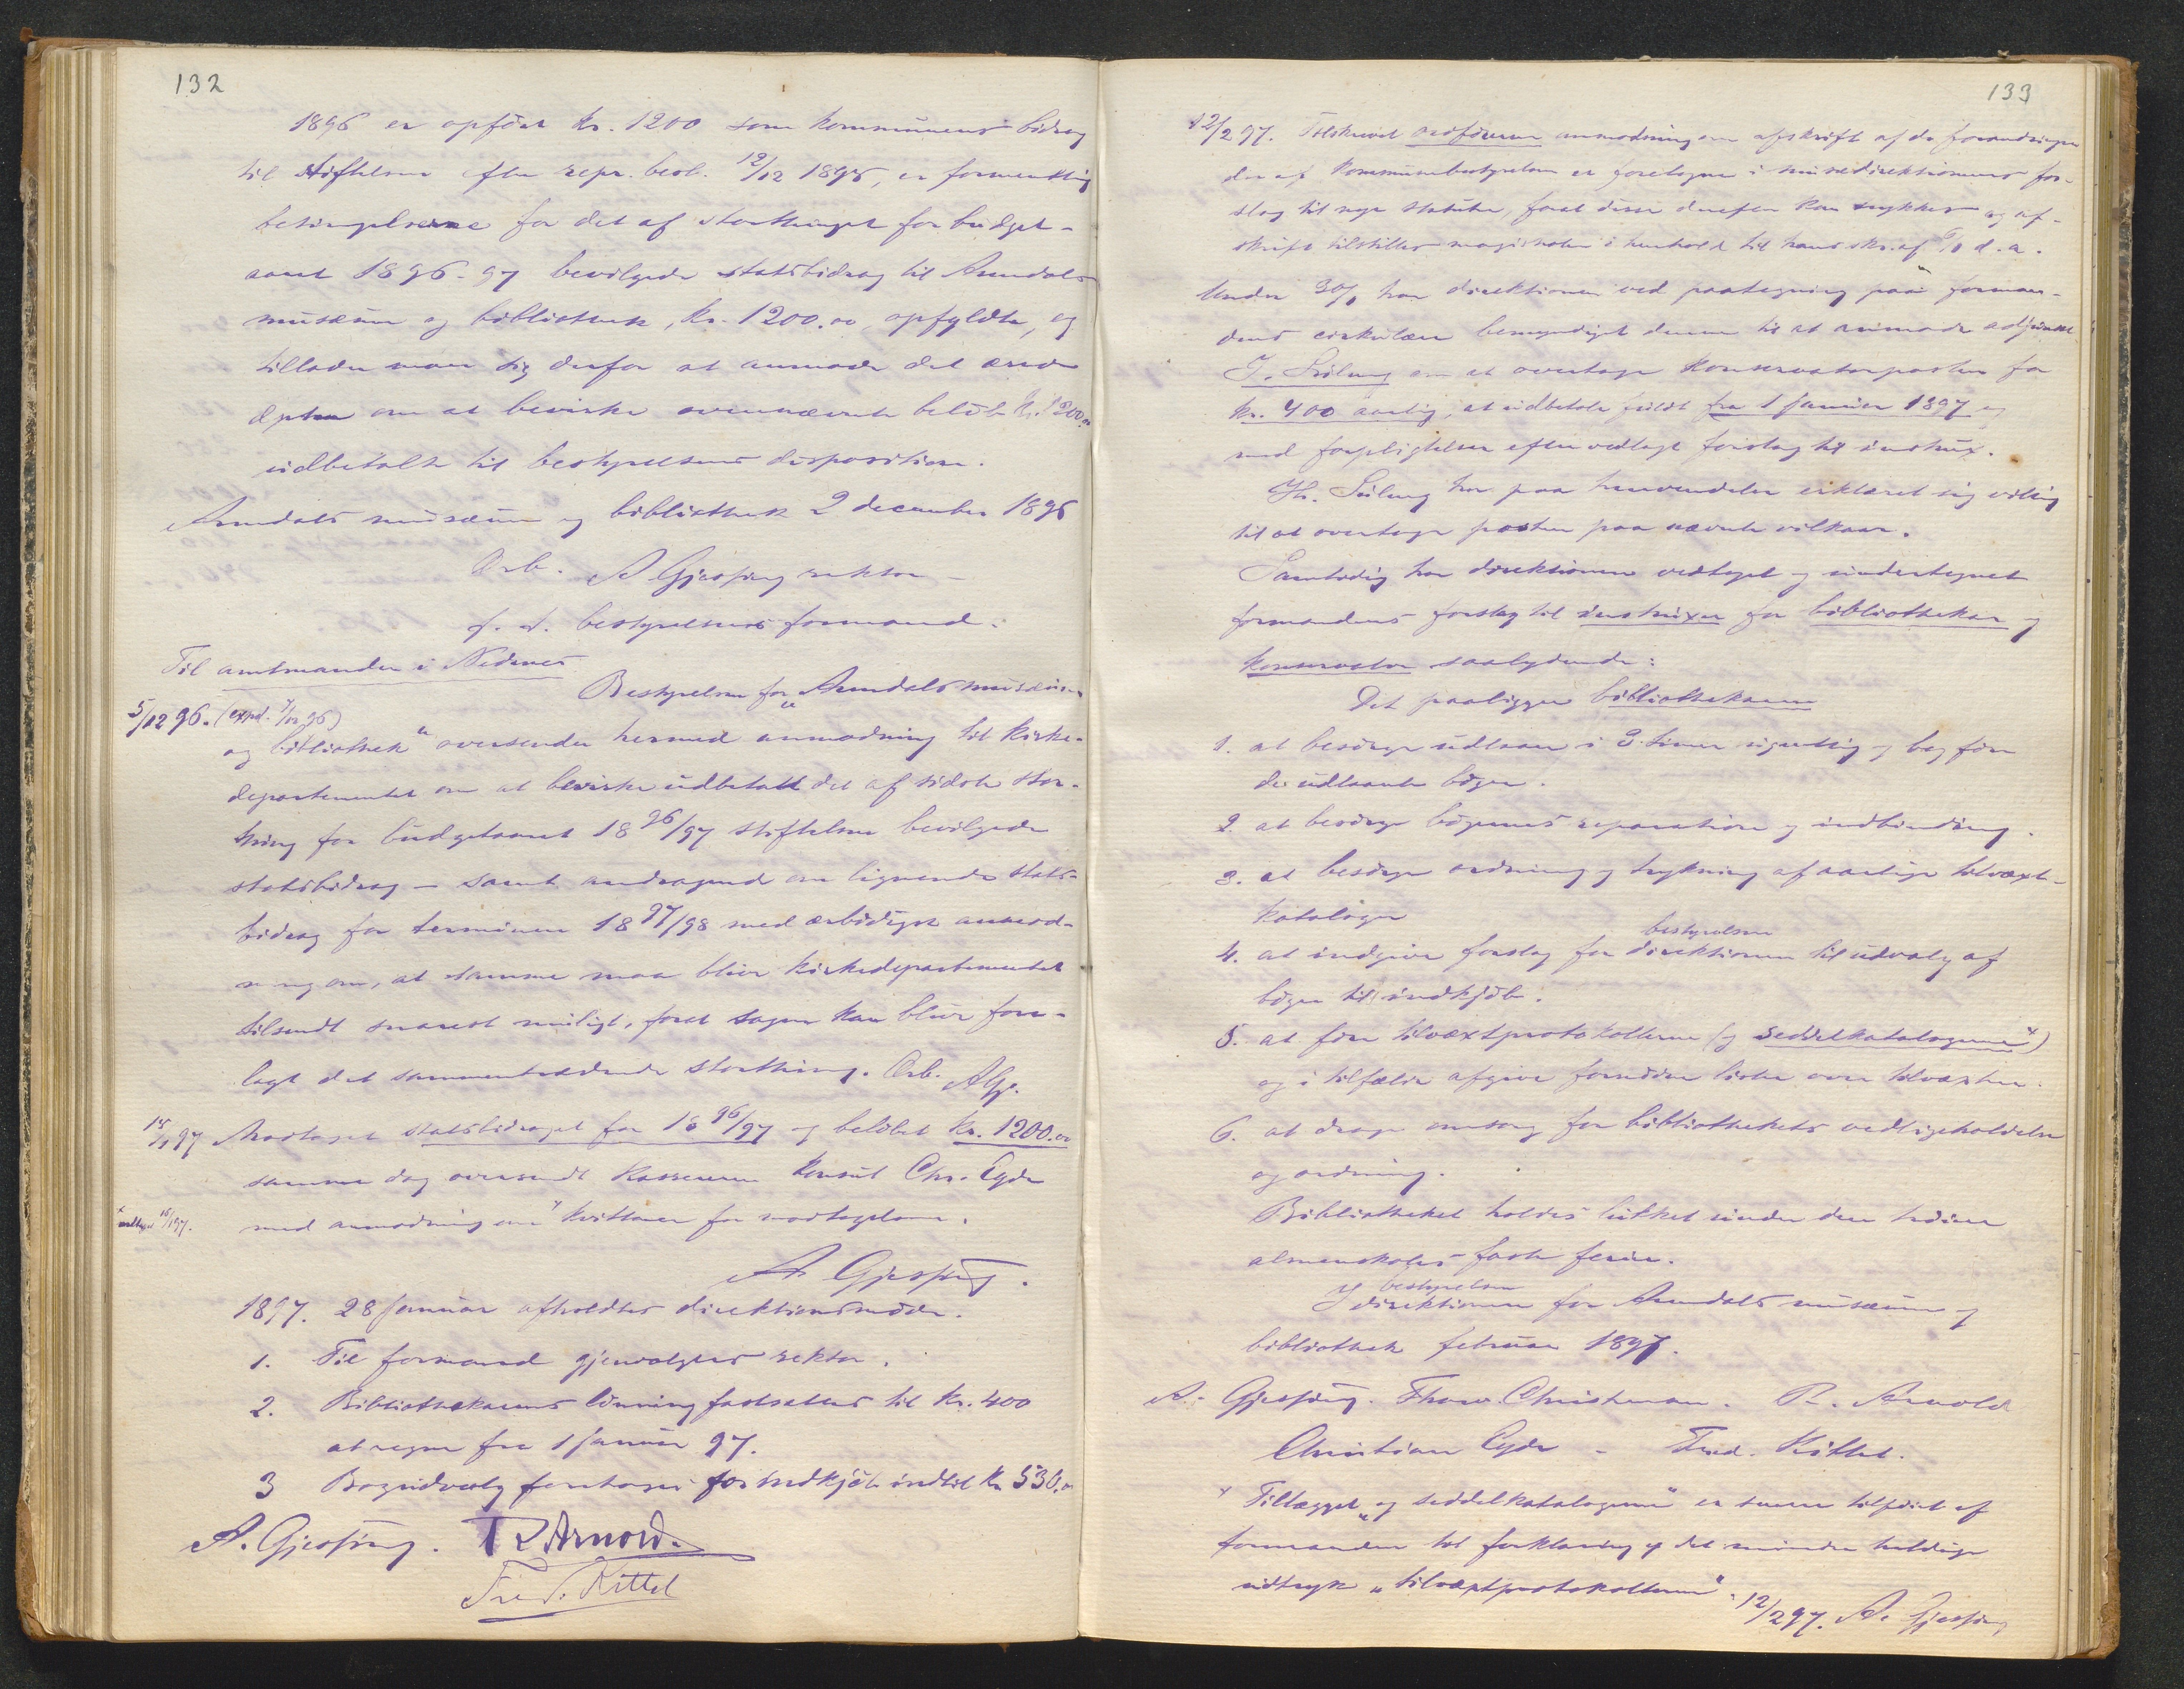 132
1896 er opført kr. 1200 som kommunens bidrag
til stiftelsen efter repr. besl. 12/12 1895, er formentlig
betingelserne for det af storthinget for budget-
aaret 1896-97 bevilgede statsbidrag til Arendals
musæum og bibliothek, kr. 1200.00, opfyldte, og
tillader man sig derfor at anmode det ærede
dptm om at bevirke ovennævnte beløb kr. 1200.00
udbetalt til bestyrelsens disposition.
Arendals musæum og bibliothek 2 december 1896
Ærb. A Gjessing rektor –
f. t. bestyrelsens formand.
Til amtmanden i Nedenes
Bestyrelsen for „Arendals musæum
5/12 96. (exped. 7/12 96)
og bibliothek“ oversender hermed anmodning til kirke-
departementet om at bevirke udbetalt det af sidste stor-
thing for budgetaaret 1896/97 stiftelsen bevilgede
statsbidrag – samt andragende om lignende stats-
bidrag for terminen 1897/98 med ærbødigst anmod-
ning om, at samme maa blive kirkedepartementet
tilsendt snarest muligt, forat sagen kan blive fore-
lagt det sammentrædende storthing. Ærb. AGj.
15/1 97 Modtaget statsbidraget for 1896/97 og beløbet kr. 1200.00
samme dag oversendt kassereren konsul Chr. Eyde
med anmodning om x kvittering for modtagelsen.
x modtaget 16/1 97.
A. Gjessing.
1897. 28 januar afholdtes direktionsmøde.
1. Til formand gjenvalgtes rektor.
2. Bibliothekarens lønning fastsattes til kr. 400
at regne fra 1 januar 97.
3 Bogudvalg foretoges for indkjøb indtil kr 530.00
A. Gjessing. R Arnold.
Fred. Kittel
133
12/2 97. Tilskrevet ordføreren anmodning om afskrift af de forandringer
der af kommunebestyrelsen er foretagne i musædirektionens for-
slag til nye statuter, forat disse derefter kan trykkes og af-
skrift tilstilles magistraten i henhold til hans skr. af d. a.
Under 30/1 har direktionen ved paategning paa forman-
dens cirkulære bemyndiget denne til at anmode adjunkt
om at overtage konservatorposten for
kr. 400 aarlig, at udbetale fra 1 januar 1897 og
med forpligtelser efter vedlagt forslag til instrux.
Hr. har paa henvendelse erklæret sig villig
til at overtage posten paa nævnte vilkaar.
Samtidig har direktionen vedtaget og undertegnet
formandens forslag til instruxer for bibliothekar og
konservator saalydende:
Det paaligger bibliothekaren
1. at besørge udlaan i 3 timer ugentlig og bogføre
de udlaante bøger.
2. at besørge bøgernes reparation og indbinding.
3. at besørge ordning og trykning af aarlige tilvæxt-
kataloger
4. at indgive forslag for direktionen til udvalg af
bestyrelsen
bøger til indkjøb.
5. at føre tilvæxtprotokollerne (og seddelkatalogerne x)
og i tilfælde afgive fornødne lister over tilvæxten.
6. at drage omsorg for bibliothekets vedligeholdelse
og ordning.
Bibliotheket holdes lukket under den høiere
almenskoles faste ferier.
bestyrelsen
I direktionen for Arendals musæum og
bibliothek februar 1897.
A. Gjessing. Thorv. Christensen. R. Arnold
Christian Eyde – Fred. Kittel.
x Tillægget „og seddelkatalogerne“ er senere tilføiet af
formanden til forklaring af det mindre heldige
udtryk „tilvæxtprotokollerne“. 12/2 97. A. Gjessing